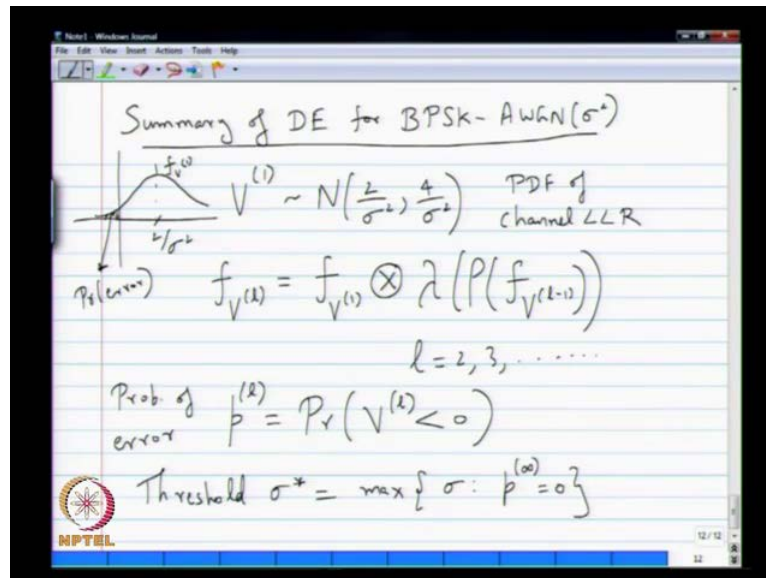 Note1 - Windows Journal
File Edit View Insert Actions Tools Help
Summary of DE for BPSK-AWGN(σ²)
f_V^(1)
V^(1) ~ N(2/σ², 4/σ²) PDF of
channel LLR
2/σ²
Pr(error)
f_V^(l) = f_V^(1) ⊗ λ(ρ(f_V^(l-1)))
l = 2, 3, ......
Prob. of
error p^(l) = Pr(V^(l) < 0)
Threshold σ* = max { σ: p^(∞) = 0 }
NPTEL
12/12
12